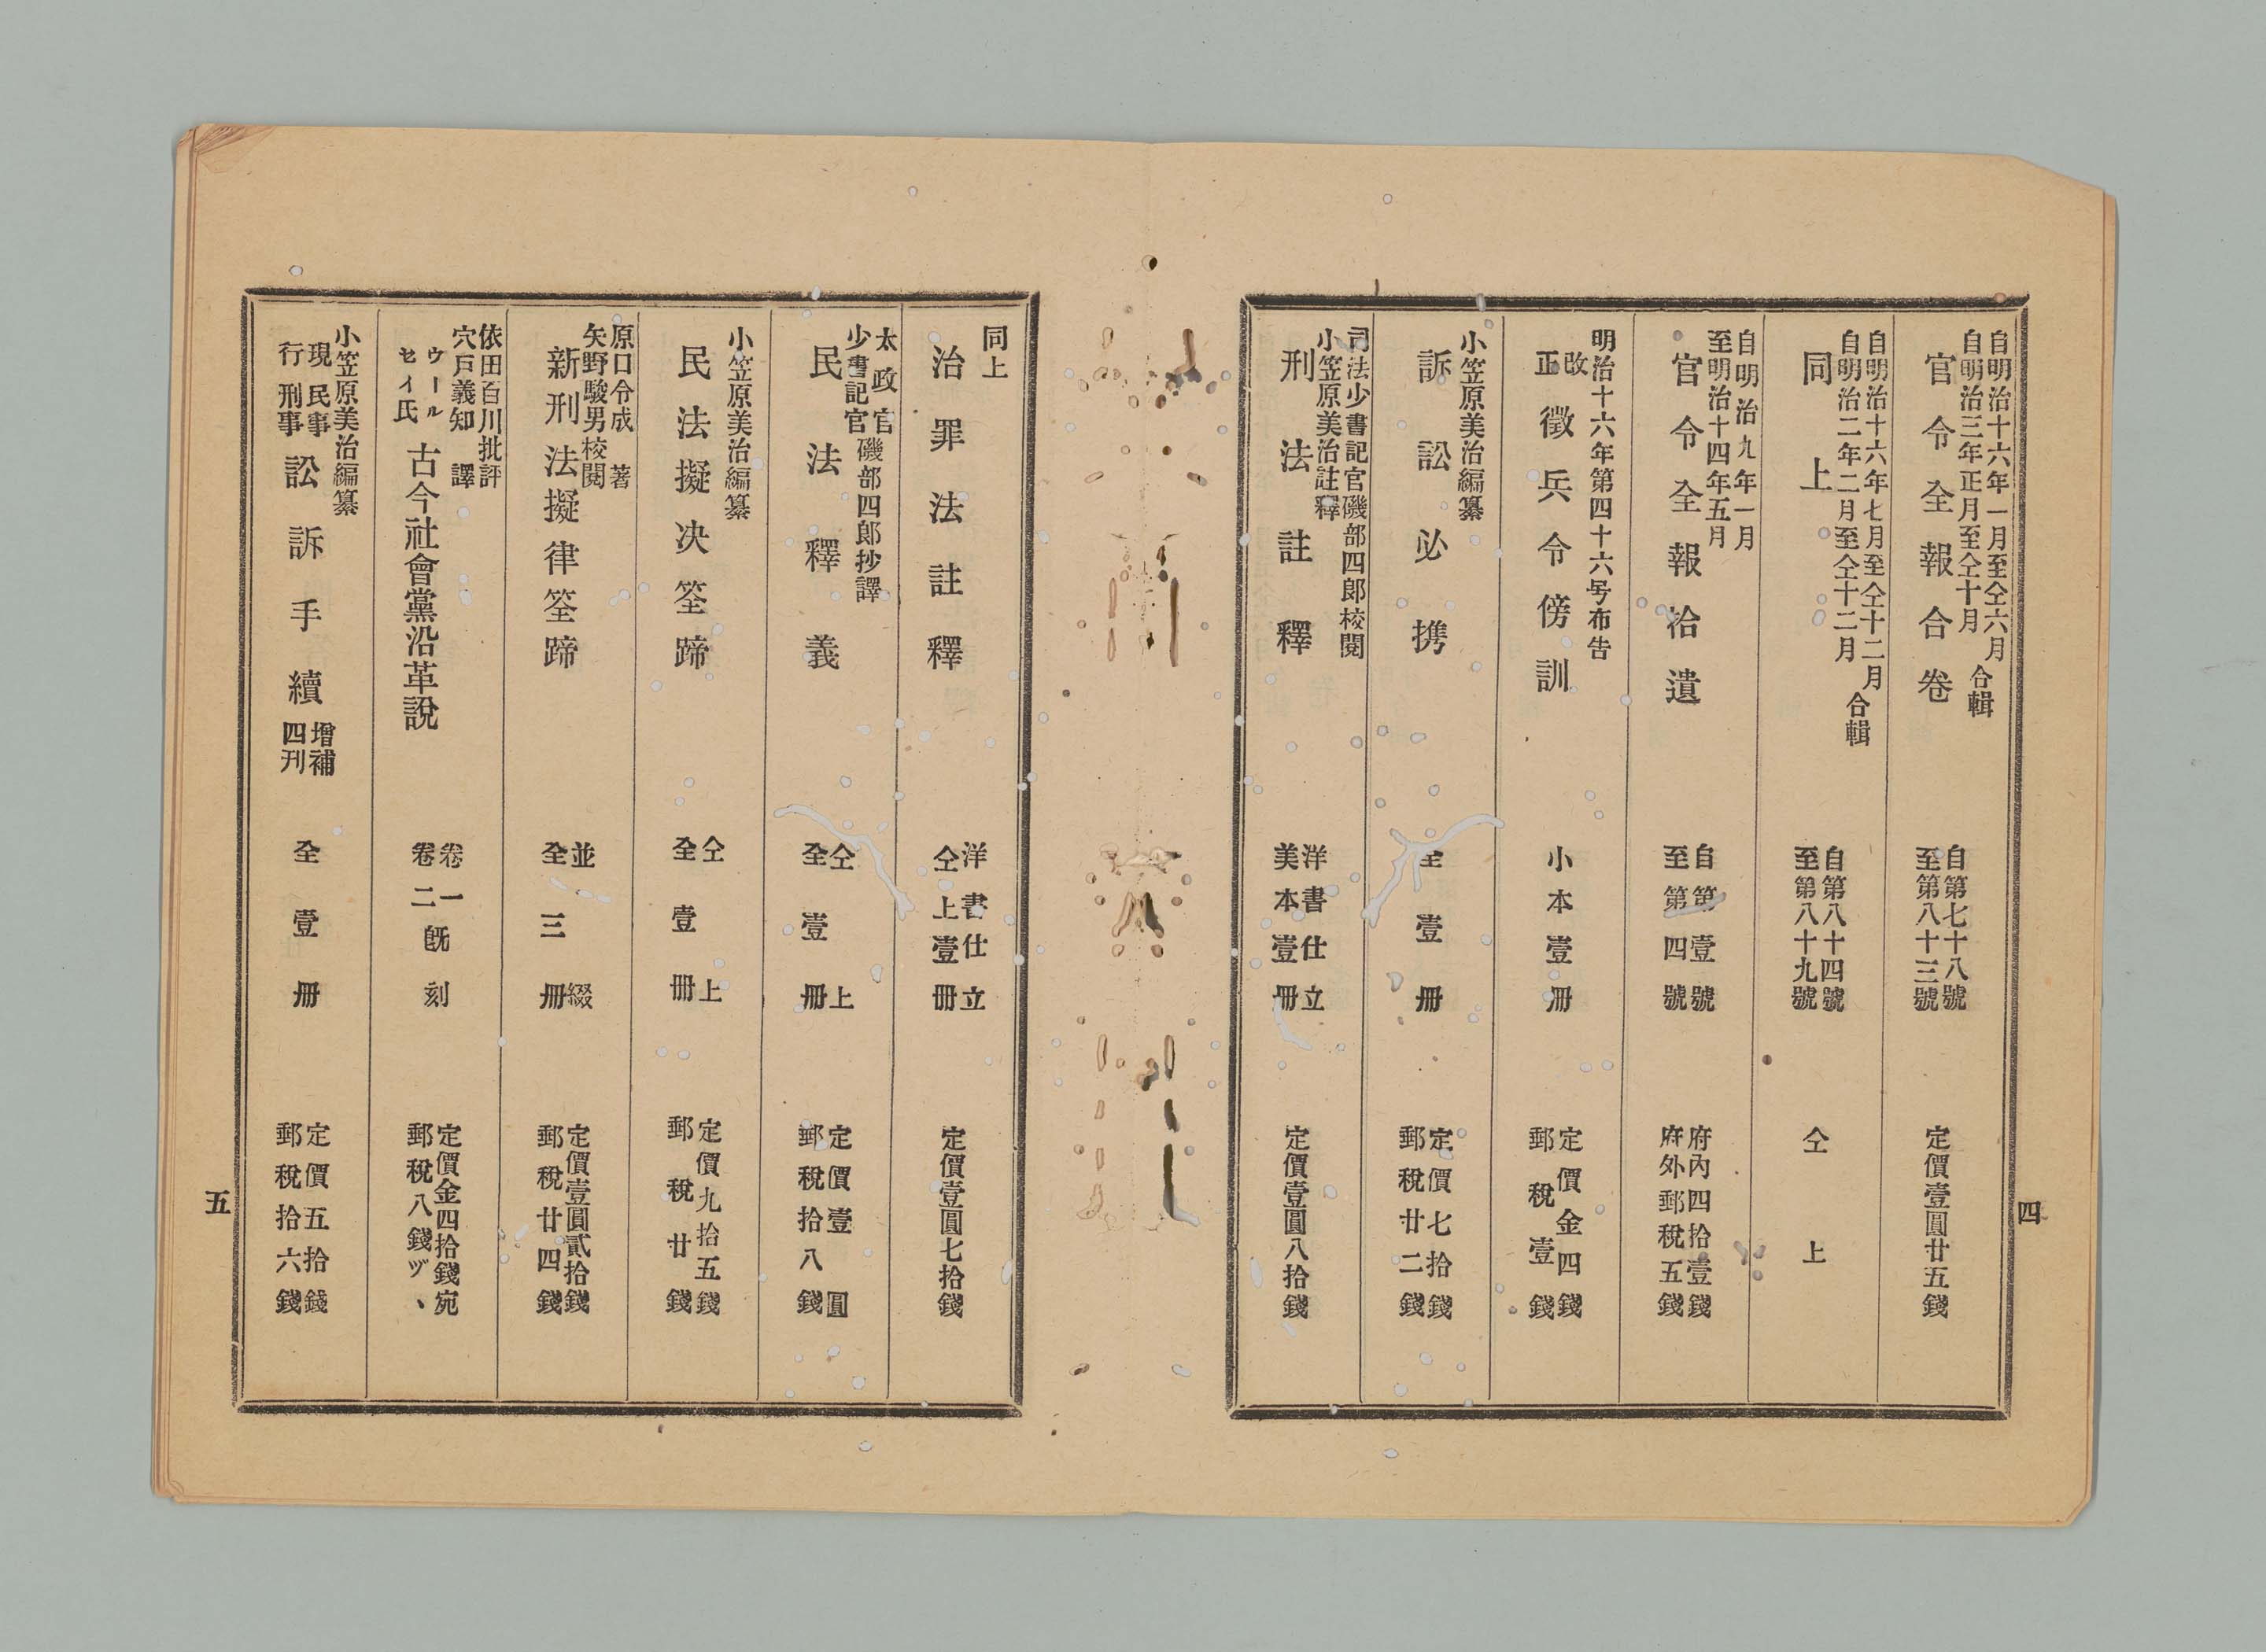 自明治十六年一月至仝六月
自明治三年正月至仝十月
合輯
官令全報合卷
自第七十八號
至第八十三號
定價壹圓廿五錢
自明治十六年七月至仝十二月
自明治二年二月至仝十二月
合輯
同上
自第八十四號
至第八十九號
仝上
自明治九年一月
至明治十四年五月
官令全報拾遺
自第壹號
至第四號
府內四拾壹錢
府外郵稅五錢
明治十六年第四十六号布告
改
正
徵兵令傍訓
小本壹册
定價金四錢
郵稅壹錢
小笠原美治編纂
訴訟必携
全壹冊
定價七拾錢
郵稅廿二錢
司法少書記官磯部四郎校閱
小笠原美治註釋
刑法註釋
洋書仕立
美本壹冊
定價壹圓八拾錢
四
同上
治罪法註釋
洋書仕立
仝上壹冊
定價壹圓七拾錢
太政官
少書記官
磯部四郎抄譯
民法釋義
仝上
全壹冊
定價壹圓
郵稅拾八錢
小笠原美治編纂
民法擬決筌蹄
仝上
全壹冊
定價九拾五錢
郵稅廿錢
原口令成著
矢野駿男校閱
新刑法擬律筌蹄
並綴
全三冊
定價壹圓貳拾錢
郵稅廿四錢
依田百川批評
宍戶義知譯
ウールセイ氏
古今社會黨沿革說
卷一
卷二
旣刻
定價金四拾錢宛
郵稅八錢ヅヽ
小笠原美治編纂
現
行
民事
刑事
訟訴手續
增補
四刊
全壹冊
定價五拾錢
郵稅拾六錢
五